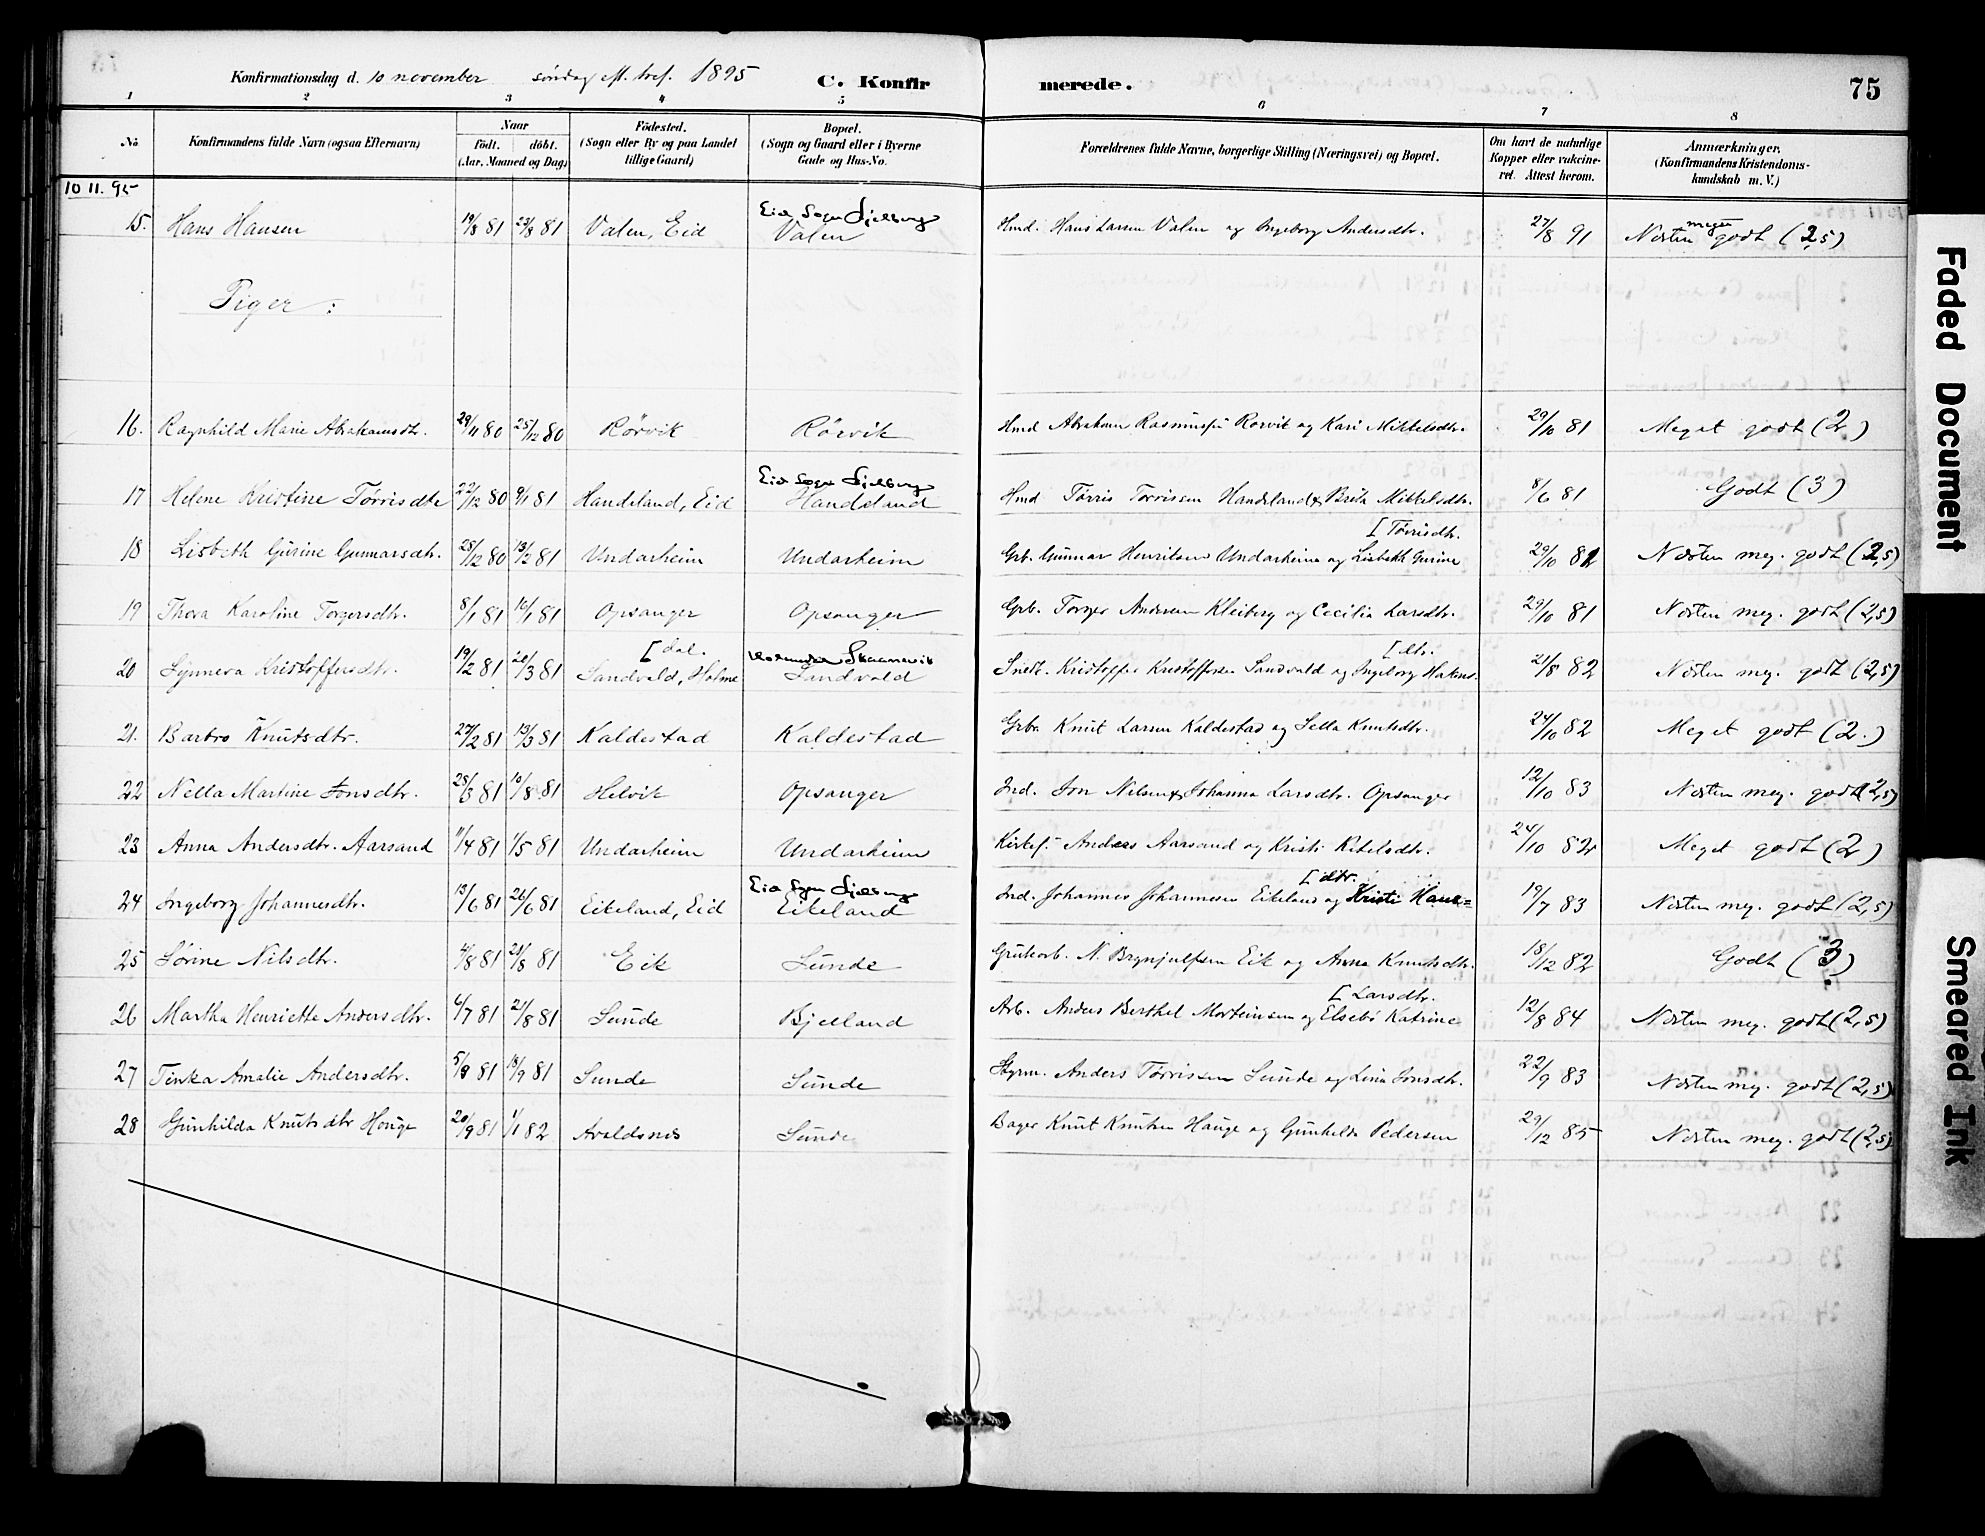 75
Konfirmationsdag d. 10 november søndag eft. tref. 1895 C. Konfirmerede.
1 2 3 4 5 6 7 8
No
Konfirmandens fulde Navn (ogsaa Efternavn)
Naar
födt. döbt.
(Aar, Maaned og Dag)
Födested.
(Sogn eller By og paa Landet tillige Gaard)
Bopæl.
(Sogn og Gaard eller i Byerne Gade og Hus-No.
Forældrenes fulde Navne, borgerlige Stilling (Næringsvei) og Bopæl.
Om havt de naturlige Kopper eller vakcineret. Attest herom.
Anmærkninger.
(Konfirmandens Kristendomskundskab m. V.)
10 11. 95
15. Hans Hansen 19/8 81 28/8 81 Valen, Eid Eid Sogn Fjelberg Valen Hmd. Hans Larsen Valen og Ingeborg Andersdtr. 27/8 91 Næsten meget godt (2,5)
Piger:
16. Ragnhild Marie Abrahamsdtr. 29/11 80 25/12 80 Rørvik Rørvik Hmd Abraham Rasmussen Rørvik og Kari Mikkelsdtr. 29/10 81 Meget godt (2)
17 Helene Kristine Tørrisdtr 22/12 80 9/1 81 Handeland, Eid Eid Sogn Fjelberg Handeland Hmd Tørris Torrisen Handeland & Brita Mikkelsdtr. 8/6 81 Godt (3)
18 Lisbeth Gurine Gunnarsdtr. 28/12 80 13/2 81 Undarheim Undarheim Grb. Gunnar Henriksen Undarheim og Lisbeth Gurine [Tørrisdtr. 29/10 82 Næsten meg. godt (2,5)
19 Thora Karoline Torgersdtr. 8/1 81 16/1 81 Opsanger Opsanger Grb. Torger Andersen Kleiberg og Cecilia Larsdtr. 29/10 81 Næsten meg. godt (2,5)
20 Synneva Kristoffersdtr. 19/2 81 20/3 81 Sandvald, Holme [dal. Holmedal Skaanevik Sandvald Snedk. Kristoffer Kristoffersen Sandvald og Ingeborg Hakons [dtr. 21/8 82 Næsten meg. godt (2,5)
21. Barbro Knutsdtr. 27/2 81 13/3 81 Kaldestad Kaldestad Grbr. Knut Larsen Kaldestad og Sella Knutsdtr. 24/10 82 Meget godt (2.)
22 Nella Martine Jonsdtr. 28/3 81 10/8 81 Helvik Opsanger Ind. Jon Nilsen & Johanna Larsdtr. Opsanger 12/10 83 Næsten meg. godt (2,5)
23 Anna Andersdtr. Aarsand 11/4 81 1/5 81 Undarheim Undarheim Kirkes. Anders Aarsand og Kristi Ketelsdtr. 24/10 82 Meget godt (2)
24 Ingeborg Johannesdtr. 13/6 81 26/6 81 Eikeland, Eid Eid Sogn Fjelberg Eikeland Ind. Johannes Johannesen Eikeland og Kristi Hans= [dtr. 19/7 83 Næsten meg. godt (2,5)
25 Sørine Nilsdtr. 4/8 81 21/8 81 Eik Sunde Grubearb. N. Brynjulfsen Eik og Anna Knutsdtr. 18/12 82 Godt (3)
26 Martha Henriette Andersdtr. 4/7 81 21/8 81 Sunde Bjelland Arb. Anders Berthel Morteinsen og Elsebö Katrine [Larsdtr. 12/8 84 Næsten meg. godt (2,5)
27 Tinka Amalie Andersdtr. 5/8 81 18/9 81 Sunde Sunde Styrm. Anders Tørrissen Sunde og Lina Jonsdtr. 22/9 83 Næsten meg. godt (2,5)
28 Gunhilda Knutsdtr Houge 20/9 81 1/1 82 Avaldsnes Sunde Bager Knut Knutsen Hauge og Gunhilda Pedersen 29/12 85 Næsten meg. godt (2,5)
Faded Document
Smeared Ink